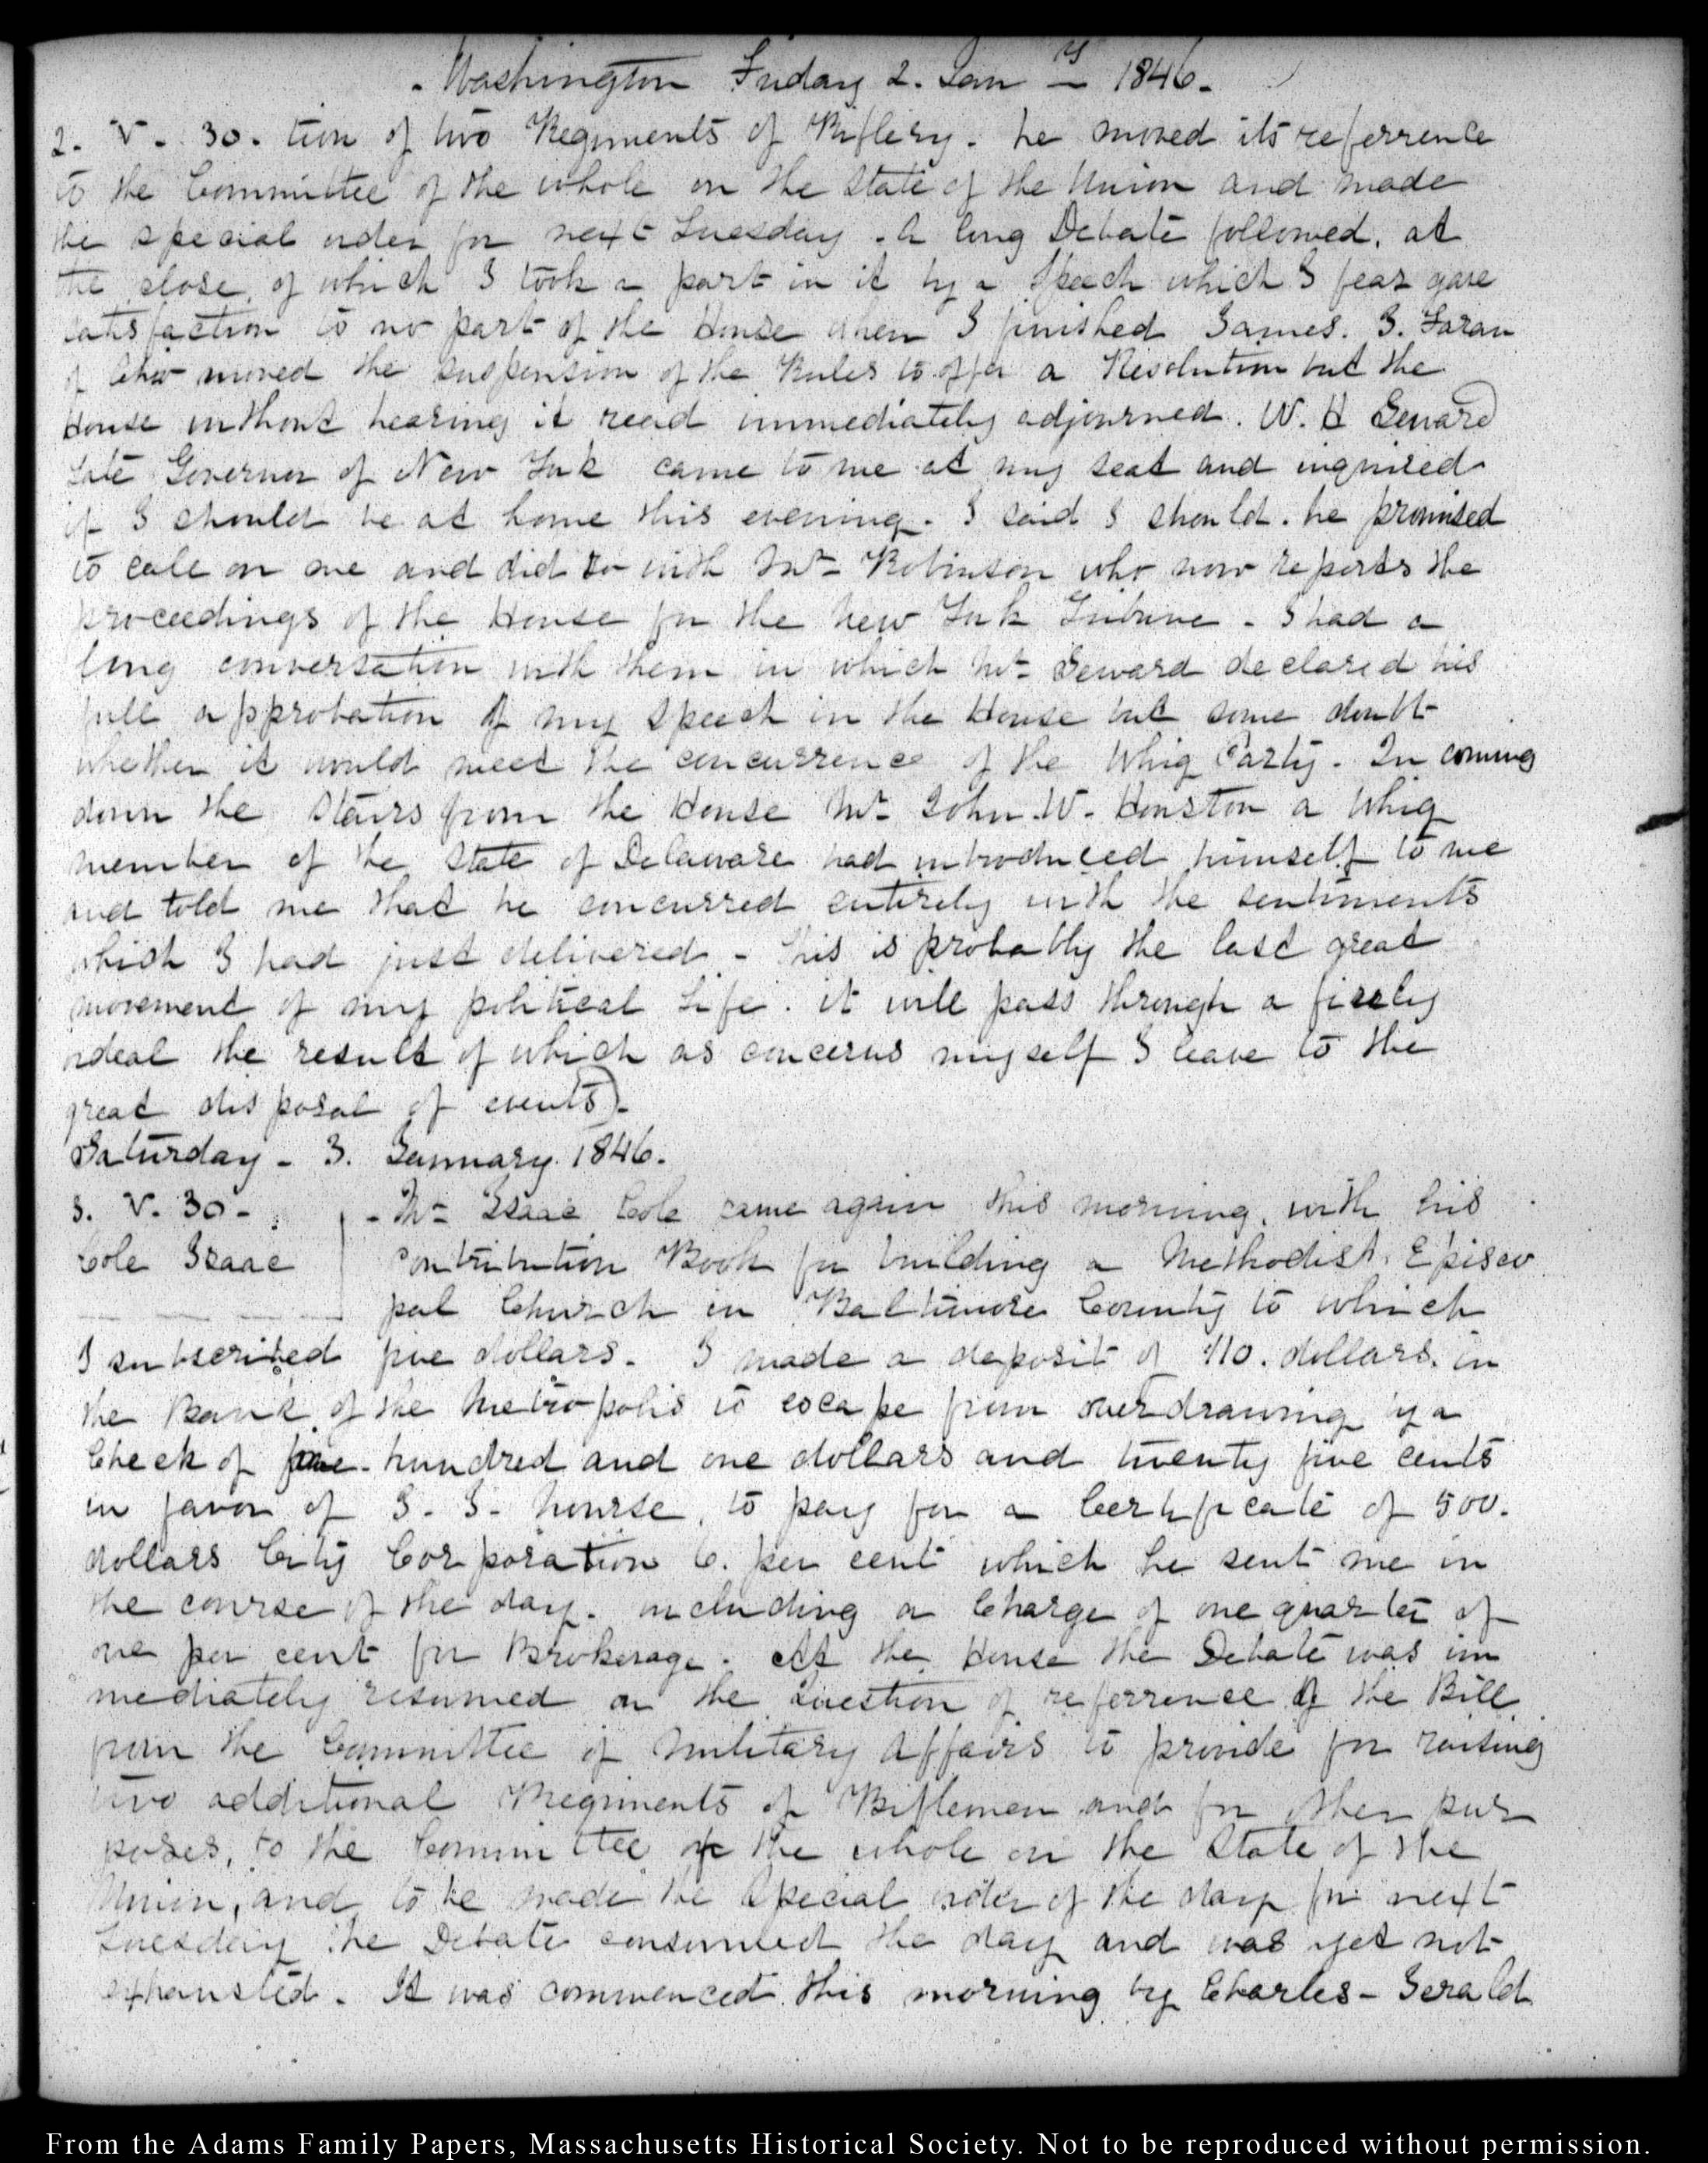 - Washington Friday 2. Jan y 1846.
2. V. 30. tion of two Regiments of Riflery. he moved its referrence
to the Committee of the whole on the state of the Union and made
the special order for next Tuesday. A long Debate followed, at
the close, of which I took a part in it by a Speech which I fear gave
satisfaction to no part of the House when I finished James. J. Faran
of Ohio moved the suspension of the Rules to offer a Resolution but the
House without hearing it read immediately adjourned. W. H Seward
late Governor of New York came to me at my seat and inquired
if I should be at home this evening. I said I should. he promised
to call on me and did so with Mr Robinson who now reports the
proceedings of the House for the New York Tribune - I had a
long conversation with them in which Mr Seward declared his
full approbation of my speech in the House but some doubt
whether it would meet the concurrence of the Whig Party. In coming
down the Stairs from the House Mr John. W. Houston a Whig
member of the State of Delaware had introduced himself to me
and told me that he concurred entirely with the sentiments
which I had just delivered - This is probably the last great
movement of my political Life. it will pass through a fiery
ordeal the result of which as concerns myself I leave to the
great disposal of events).
Saturday - 3. January. 1846.
3. V. 30 - - Mr Isaac Cole came again this morning, with his
Cole Isaac contribution Book for building a Methodist. Episco
pal Church in Baltimore County to which
I subscribed five dollars. I made a deposit of 110. dollars. in
the Bank of the Metropolis to escape from overdrawing by a
Check of five hundred and one dollars and twenty five cents
in favor of J. J. Nourse, to pay for a Certificate of 500.
dollars City Corporation 6. per cent which he sent me in
the course of the day. including a Charge of one quarter of
one per cent for Brokerage. At the House the Debate was im
mediately resumed on the Question of referrence of the Bill
from the Committee of Military Affairs to provide for raising
two additional Regiments of Riflemen and for other pur
poses, to the Committee of the whole on the State of the
Union, and to be made the special order of the day for next
Tuesday the Debate consumed the day and was yet not
exhausted. It was commenced this morning by Charles - Jerald
From the Adams Family Papers, Massachusetts Historical Society. Not to be reproduced without permission.